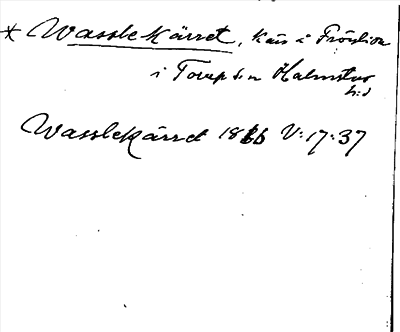 * Wasslekärret, kärr å Fröslida
i Torup sn Halmstads
hd
Wasslekärret 1866 V:17:37